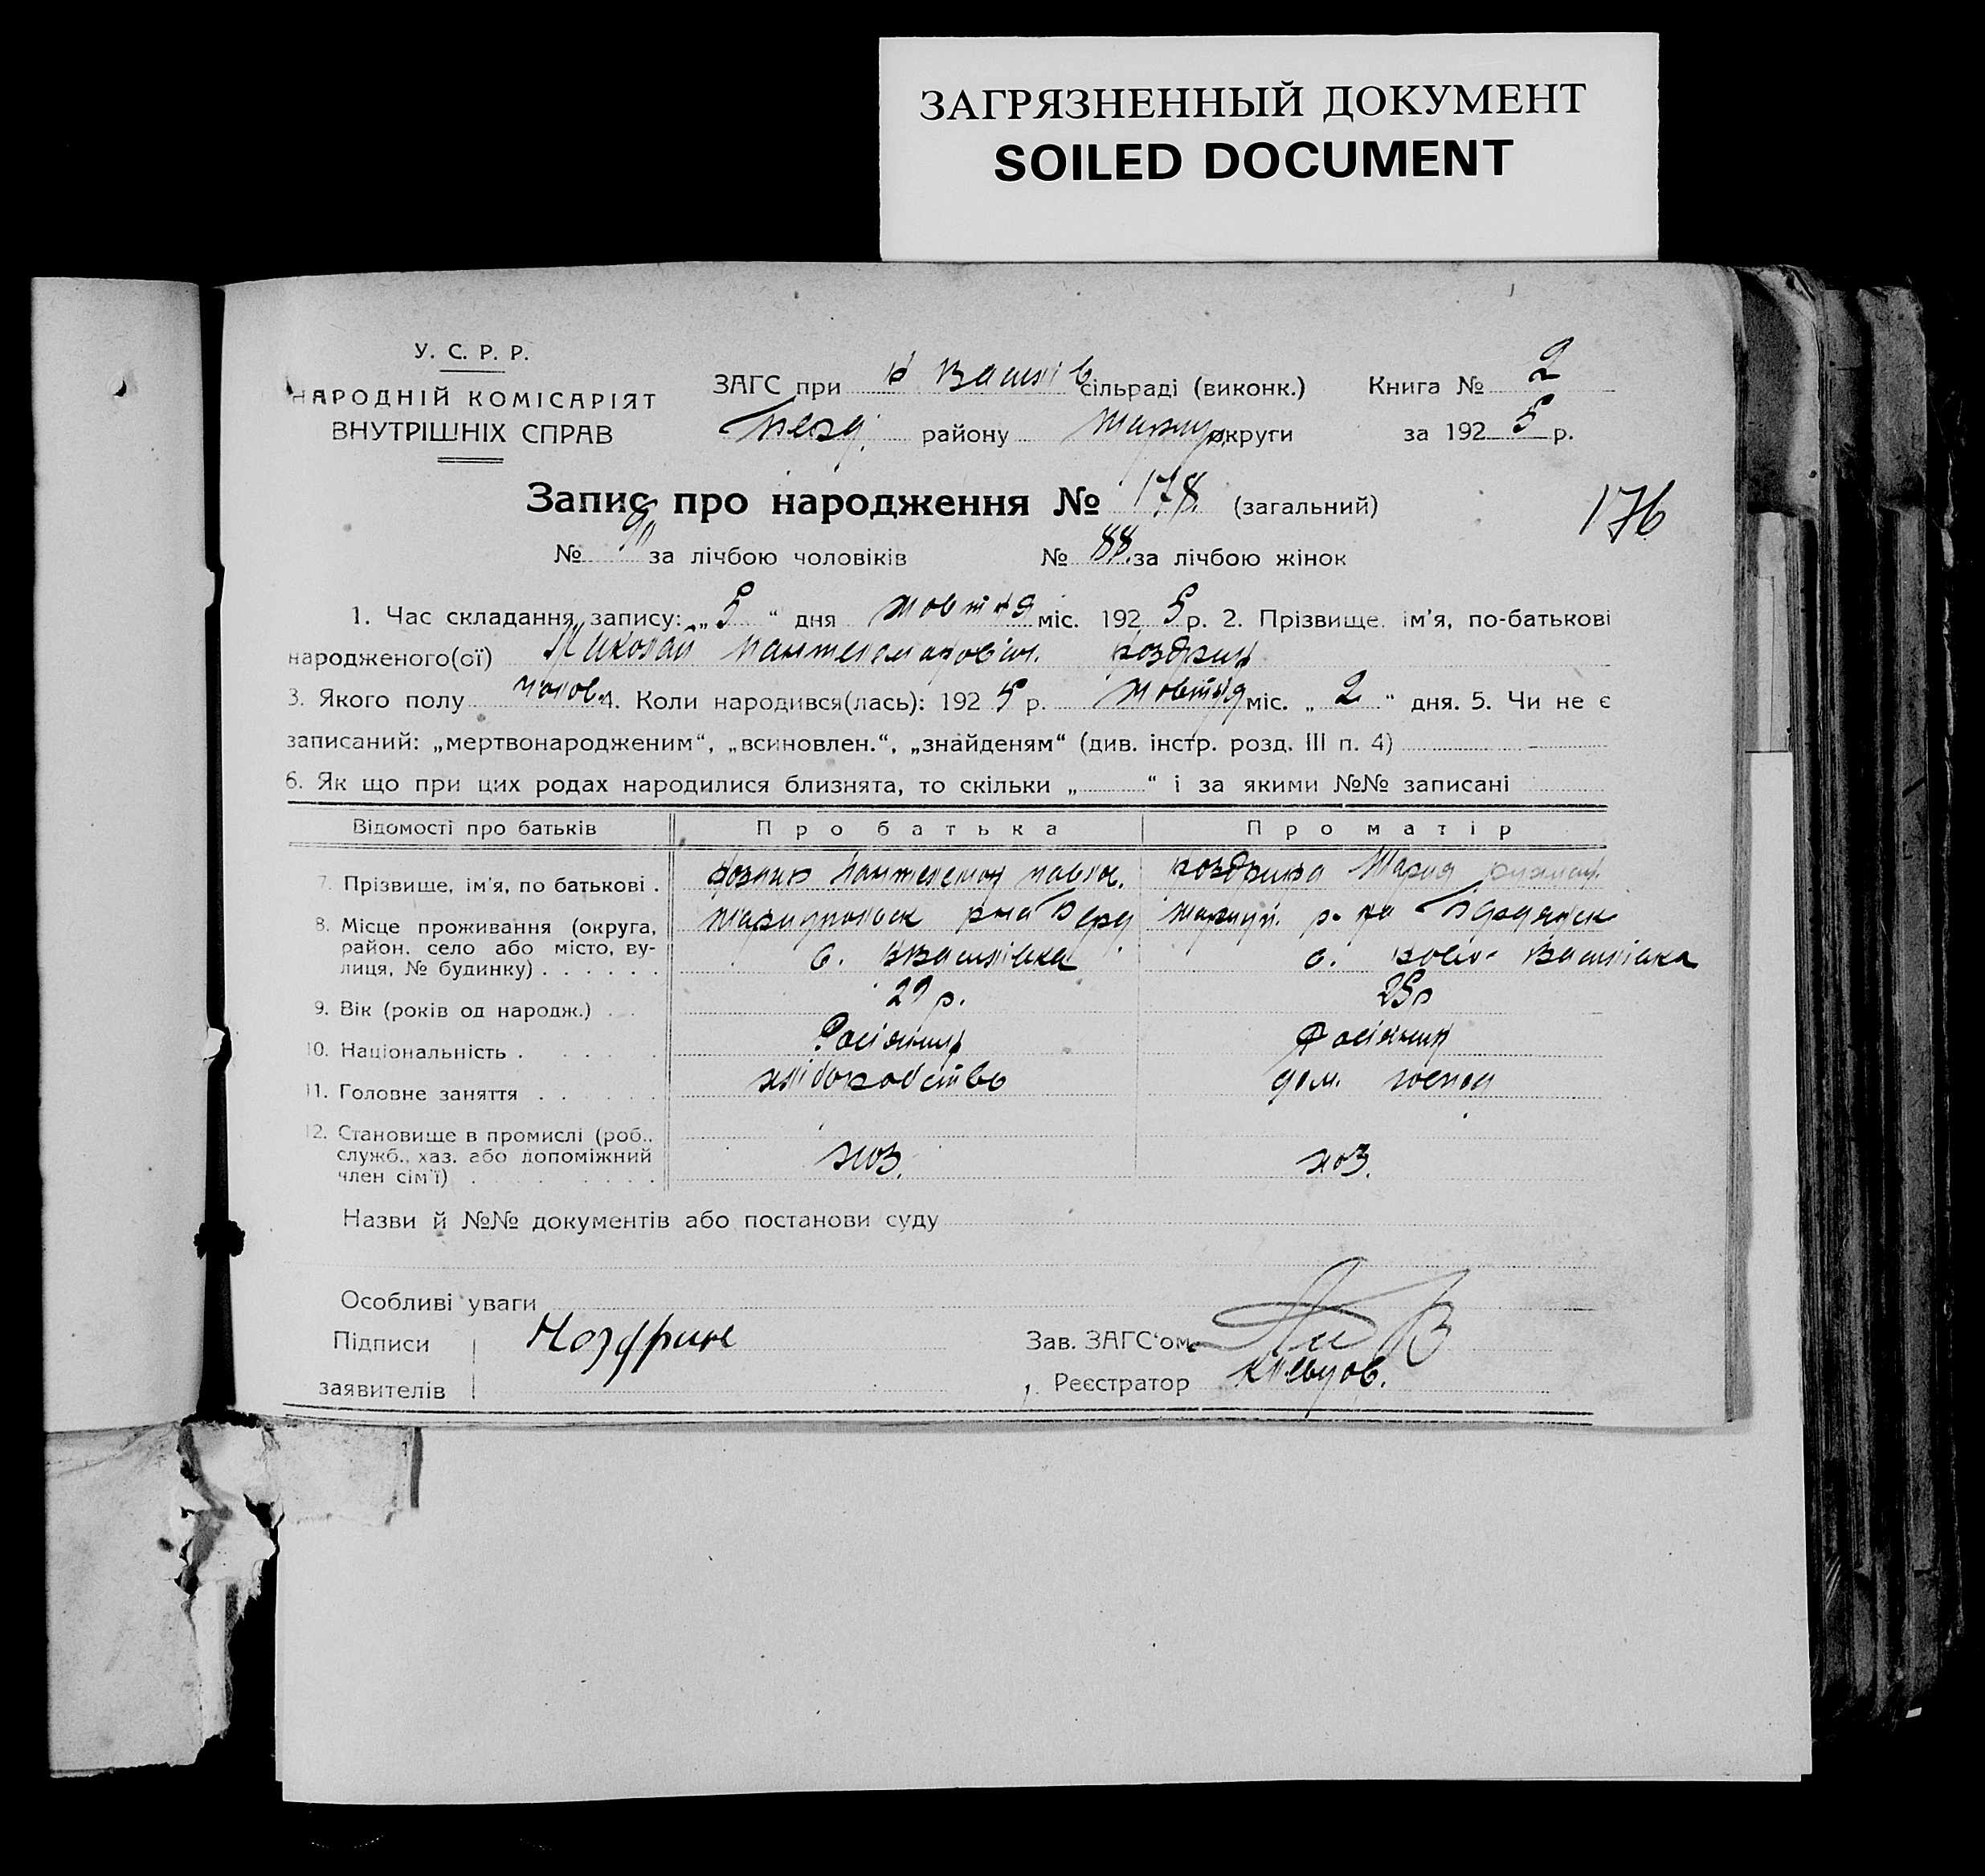 ЗАГРЯЗНЕННЫЙ ДОКУМЕНТ
SOILED DOCUMENT
У. С. Р. Р.
НАРОДНІЙ КОМІСАРІЯТ
ВНУТРІШНІХ СПРАВ
ЗАГС при Н Василів сільраді (виконк.) Книга № 2
Берд. району Маріуп. округи за 1925 р.
Запис про народження № 178 (загальний)
176
№ 90 за лічбою чоловіків № 88 за лічбою жінок
1. Час складання запису: „5“ дня жовтня міс. 1925 р. 2. Прізвище, ім'я, по-батькові
народженого(ої) Николай Пантелемонович Ноздрин
3. Якого полу чолов. 4. Коли народився(лась): 1925 р. жовтня міс. „2“ дня. 5. Чи не є
записаний: „мертвонародженим“, „всиновлен.“, „знайденям“ (див. інстр. розд. III п. 4)
6. Як що при цих родах народилися близнята, то скільки „ “ і за якими №№ записані
Відомості про батьків Про батька Про матір
7. Прізвище, ім'я, по батькові . Пантелемон Павлов. Ноздрина Мария
8. Місце проживання (округа, Маріупольск р-на Берд Маріуп. р-на Бердянск
район, село або місто, ву-
лиця, № будинку) . . . . . . с. НВасилівка с. Ново-Василівка
9. Вік (років од народж.) . . 29 р. 25 р
10. Національність . . . . . Росіянин Росіянин
11. Головне заняття . . . . . . хліборобство дом. господ
12. Становище в промислі (роб.,
служб., хаз. або допоміжний хоз. хоз.
член сім'ї) . . . . . . .
Назви й №№ документів або постанови суду
Особливі уваги
Підписи Ноздрин Зав. ЗАГС'ом
заявителів Реєстратор